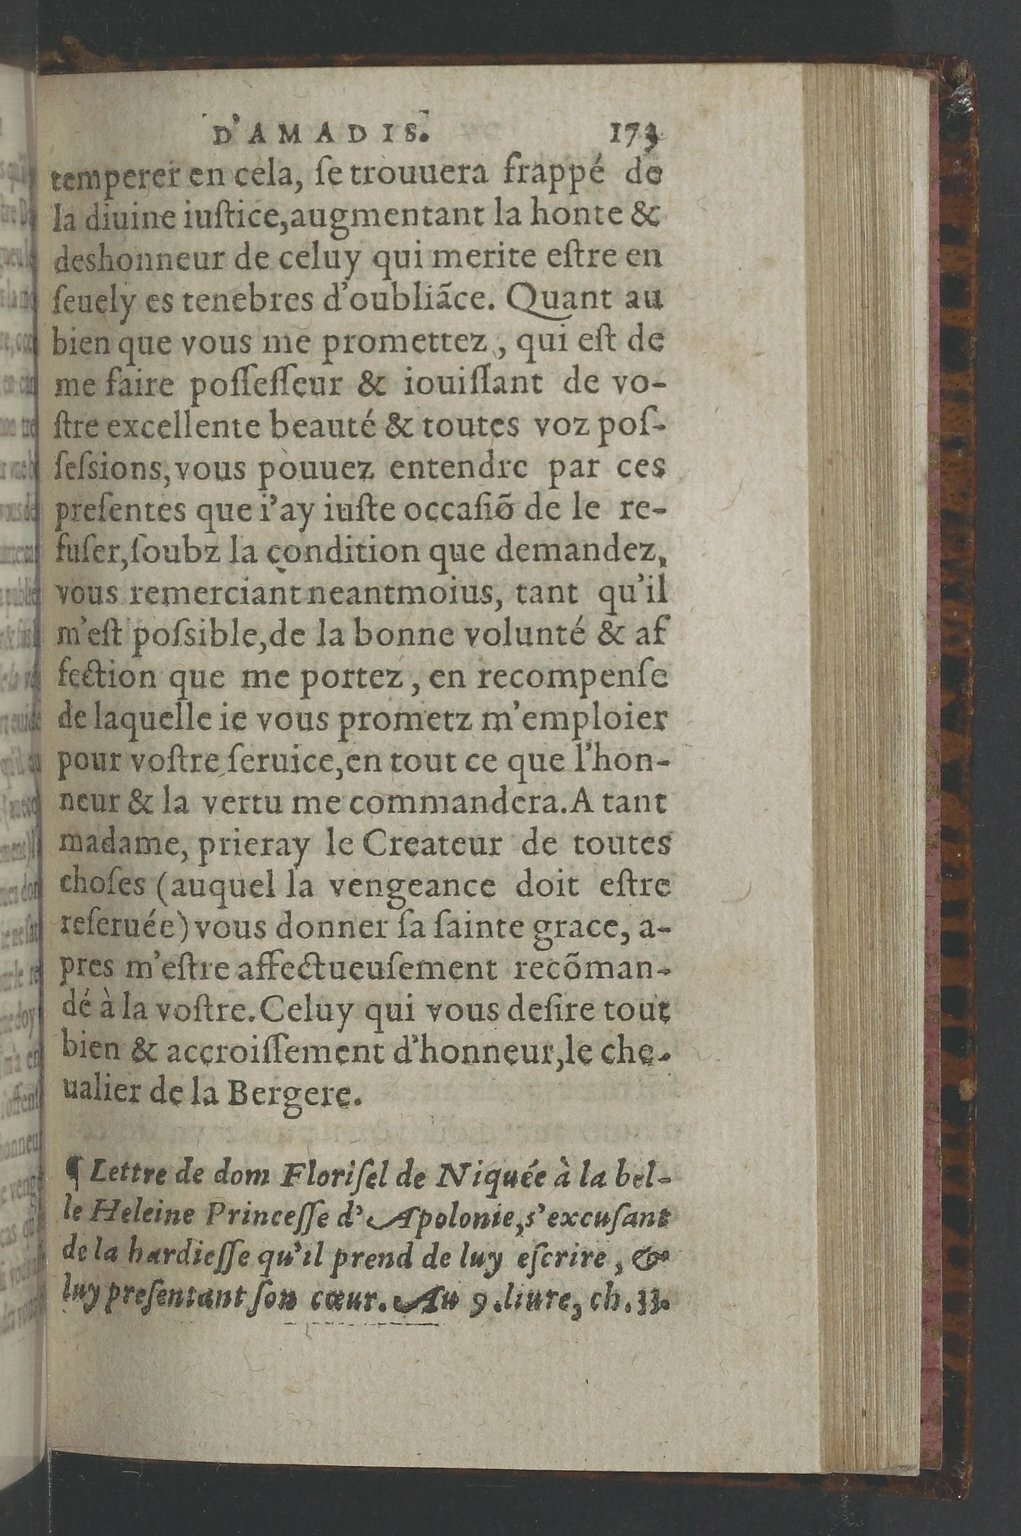 D'AMADIS. 173
temperer en cela, ſe trouuera frappé de
la diuine iuſtice,augmentant la honte &
deshonneur de celuy qui merite eſtre en
ſeuely es tenebres d'oubliãce. Quant au
bien que vous me promettez , qui eſt de
me faire poſſeſſeur & iouiſſant de vo-
ſtre excellente beauté & toutes voz poſ-
ſeſsions,vous pouuez entendre par ces
preſentes que i'ay iuſte occaſiõ de le re-
fuſer,ſoubz la condition que demandez,
vous remerciant neantmoius, tant qu'il
m'eſt poſsible,de la bonne volunté & af
fection que me portez , en recompenſe
de laquelle ie vous prometz m'emploier
pour voſtre ſeruice,en tout ce que l'hon-
neur & la vertu me commandera.A tant
madame, prieray le Createur de toutes
choſes (auquel la vengeance doit eſtre
reſeruée) vous donner ſa ſainte grace, a-
pres m'eſtre affectueuſement recõman-
dé à la voſtre.Celuy qui vous deſire tout
bien & accroiſſement d'honneur,le che-
ualier de la Bergere.
¶ Lettre de dom Floriſel de Niquée à la bel-
le Heleine Princeſſe d'Apolonie,s'excuſant
de la hardieſſe qu'il prend de luy eſcrire , &
luy preſentant ſon cœur. Au 9.liure, ch.33.